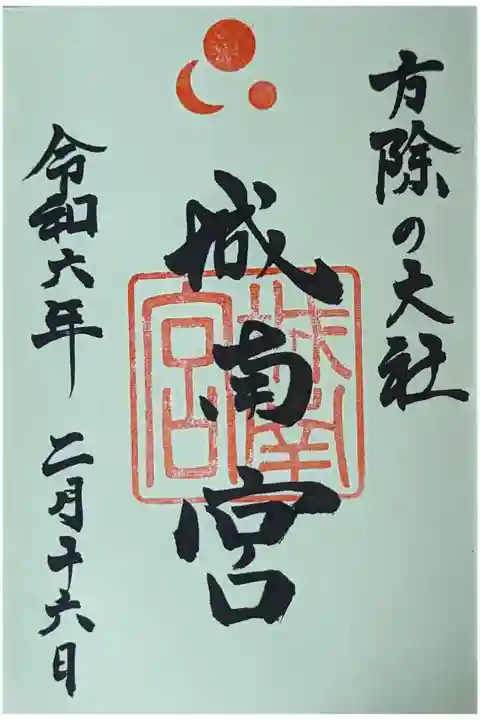 方除の大社
城南宮
城南宮
令和六年 二月十六日